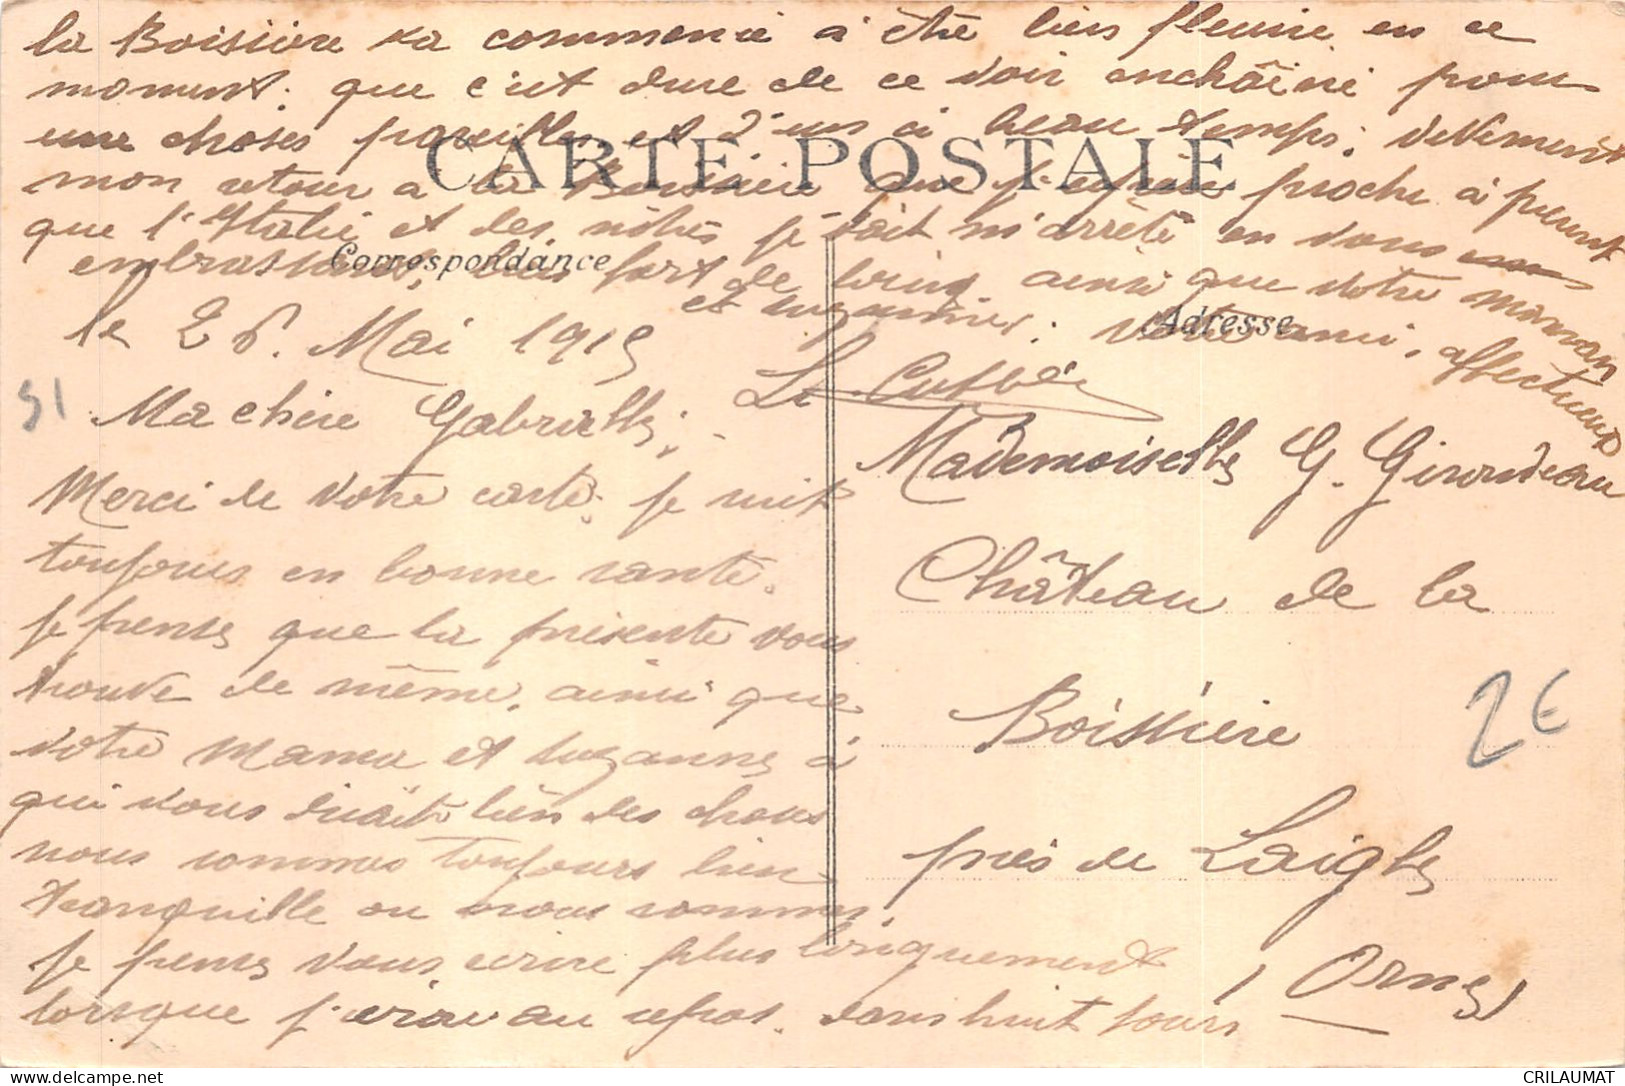 le 26. Mai 1915
Ma chère Gabrielle,
Merci de votre carte. je suis
toujours en bonne santé.
je pense que la présente vous
trouve de même, ainsi que
votre Maman et Suzanne à
qui vous direz bien des choses
nous sommes toujours bien
tranquille ou nous sommes,
je pense vous écrire plus longuement
lorsque j'irai au repos. dans huit jours
la Boissière a commencé à être bien fleurie en ce
moment. que c'est dure de ce voir enchaîné pour
une choses pareilles et d'un si beau temps; vivement
mon retour a la Boissière que j'espère proche a présent
que l'Italie et des nôtres, je doit m'arrêté en vous
embrassant bien fort de loin ainsi que votre maman
et Suzanne. votre ami, affectueux
CARTE POSTALE
Correspondance
Adresse
Mademoiselle G. Girondeau
Château de la
Boissière
près de Laigle
(Orne)
51
2€
CRILAUMAT